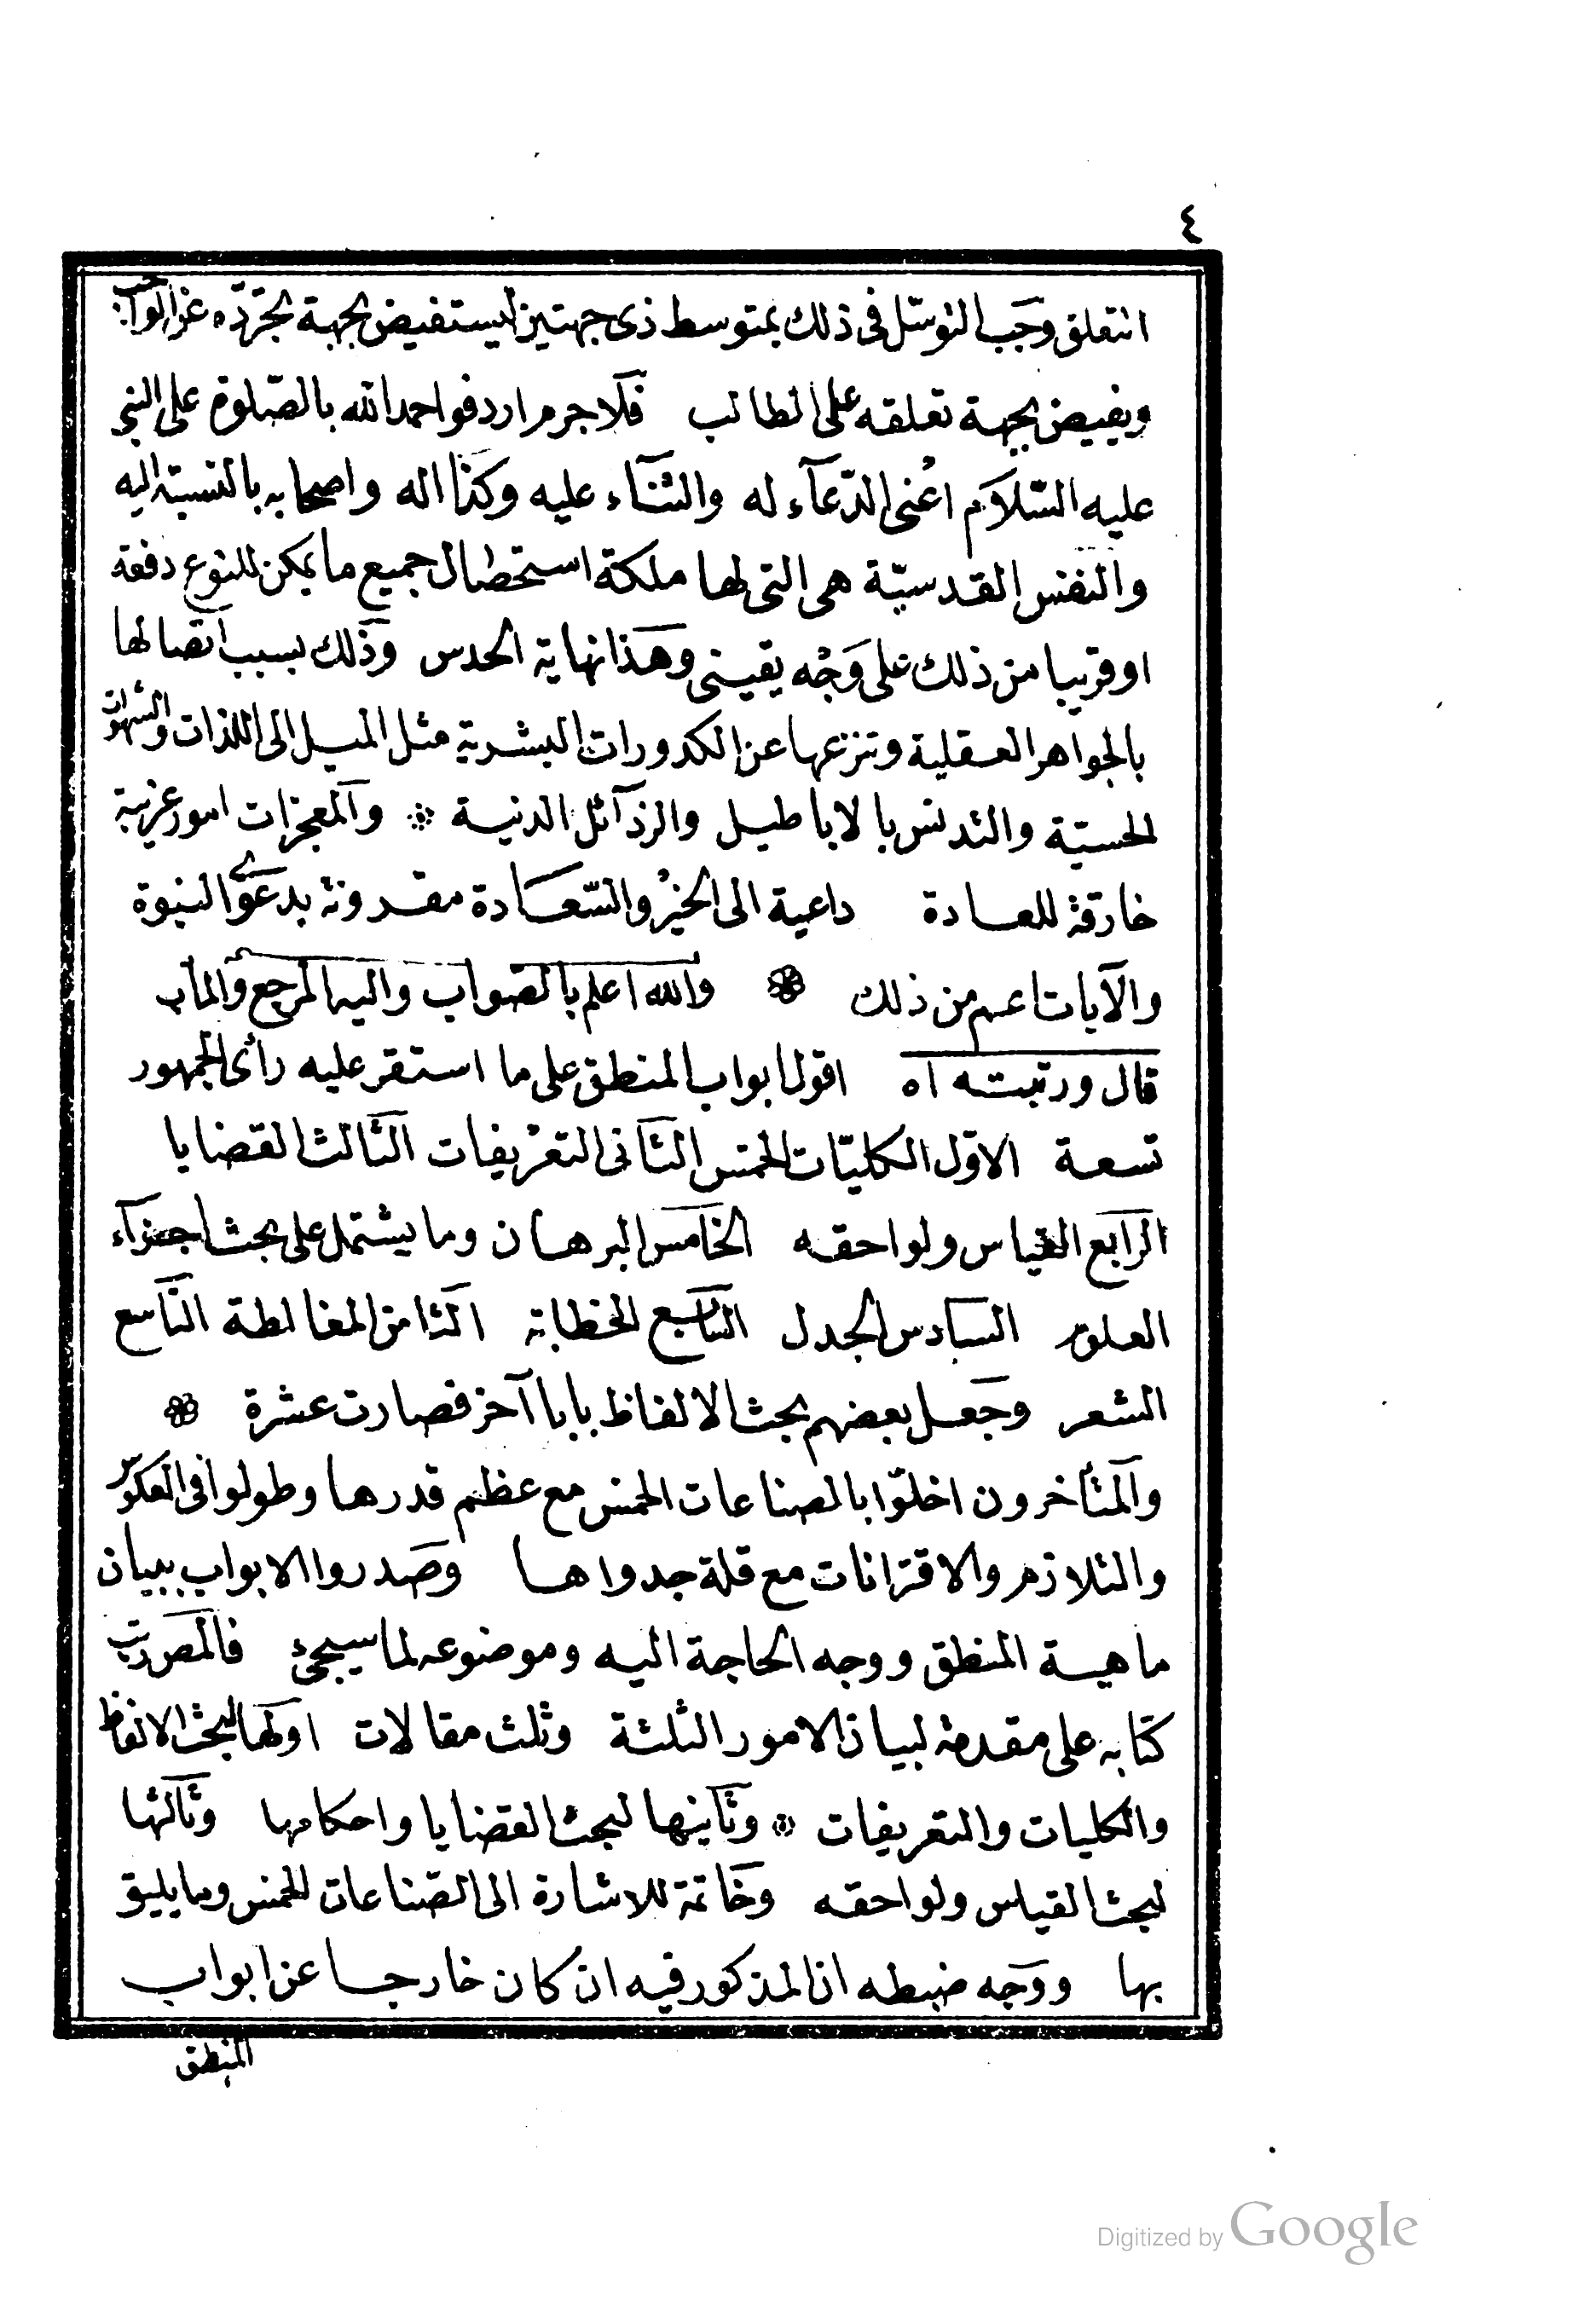 ٤
التعلق وجب التوسّل فى ذلك بمتوسط ذى جهتين ليستفيض بجهة تجرّده عن الواجب
ويفيض بجهة تعلقه على الطالب فلا جرم اردفوا حمد الله بالصّلوة على النبى
عليه السّلام اعنى الدّعآء له والثنآء عليه وكذا اله واصحابه بالنسبة اليه
والنفس القدسيّة هى التى لها ملكة استحضال جميع ما يمكن للنوع دفعة
او قريبا من ذلك على وجه يقينى وهذا نهاية الحدس وذلك بسبب اتصالها
بالجواهر العقلية وتنزعها عن الكدورات البشرية مثل الميل الى اللذات والشهوات
الحسيّة والتدنس بالاباطيل والرذآئل الدنية والمعجزات امور غريبة
خارقة للعادة داعية الى الخير والسّعادة مقرونة بدعوى النبوة
والآيات اعم من ذلك والله اعلم بالصواب واليه المرجع والمأب
قال ورتبته اه اقول ابواب المنطق على ما استقر عليه رأى الجمهور
تسعة الاوّل الكليّات الخمس الثانى التعريفات الثالث القضايا
الرابع القياس ولواحقه الخامس البرهان وما يشتمل على بحث اجزآء
العلوم السادس الجدل السابع الخطابة الثامن المغالطة التاسع
الشعر وجعل بعضهم بحث الالفاظ بابا آخر فصارت عشرة
والمتأخرون اخلوّا بالصناعات الخمس مع عظم قدرها وطولوا فى العكوس
والتلازم والاقترانات مع قلة جدواها وصدروا الابواب ببيان
ماهية المنطق ووجه الحاجة اليه وموضوعه لما سيجئ فالمص رتب
كتابه على مقدمة لبيان الامور الثلثة وثلث مقالات اولها لبحث الالفاظ
والكليات والتعريفات وثانيها لبحث القضايا واحكامها وثالثها
لبحث القياس ولواحقه وخاتمة للاشارة الى الصّناعات الخمس وما يليق
بها ووجه ضبطه ان المذكور فيه ان كان خارجا عن ابواب
المنطق
Digitized by Google